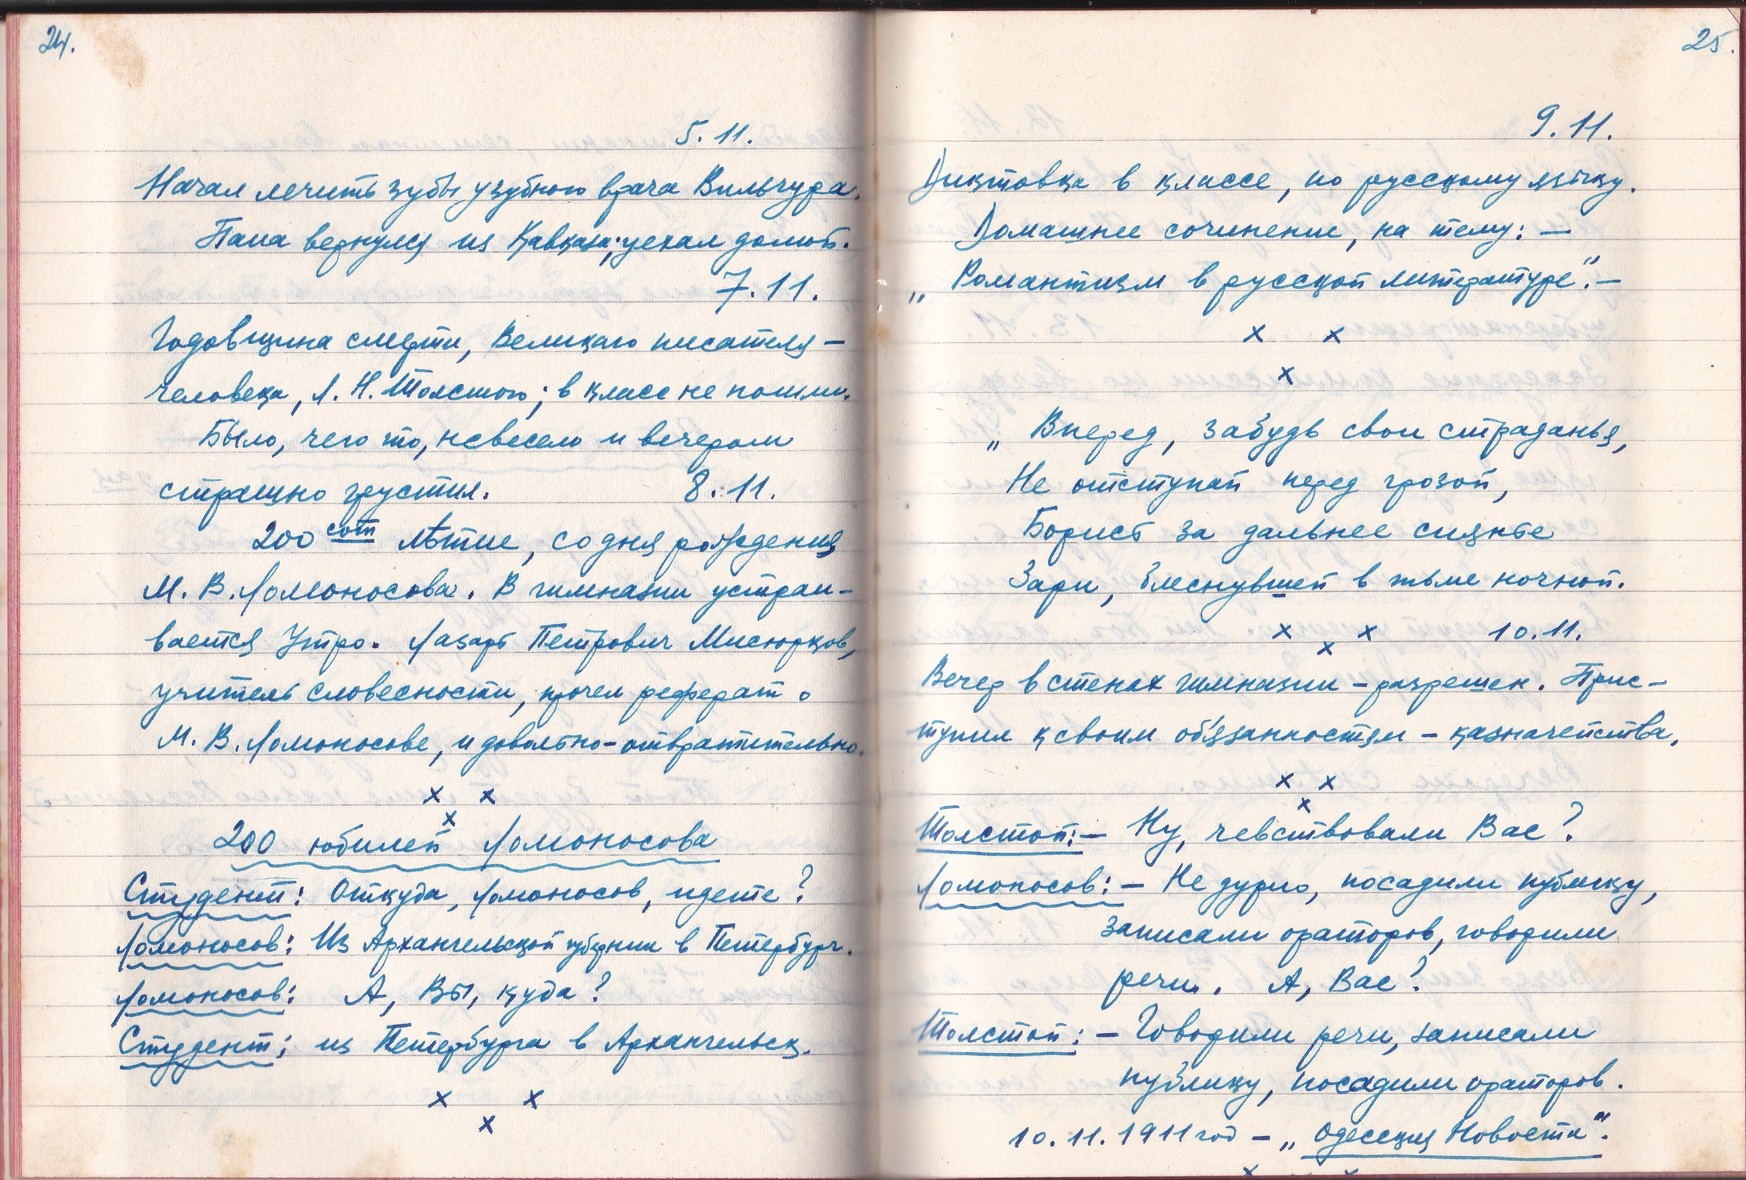 24.
5. 11.
Начал лечить зубы у зубного врача Вильчура.
Папа вернулся из Кавказа; уехал домой.
7. 11.
Годовщина смерти, Великаго писателя –
человека, Л. Н. Толстого; в класс не пошли.
Было, чего то, невесело и вечером
страшно грустил. 8. 11.
200 сот лѣтие, со дня рождения
М. В. Ломоносова. В гимназии устраи–
вается Утро. Лазарь Петрович Мисюрков,
учитель словесности, прочел реферат о
М. В. Ломоносове, и довольно – отвратительно.
x x
x
200 юбилей Ломоносова
Студент: Откуда, Ломоносов, идете?
Ломоносов: Из Архангельской губернии в Петербург.
Ломоносов: А, Вы, куда?
Студент: из Петербурга в Архангельск.
x x
x
25.
9. 11.
Диктовка в классе, по русскому языку.
Домашнее сочинение, на тему: –
„Романтизм в русской литературе". –
x x
x
„Вперед, забудь свои страданья,
Не отступай перед грозой,
Борись за дальнее сиянье
Зари, блеснувшей в тьме ночной.
x x 10. 11.
x
Вечер в стенах гимназии – разрешен. Прис–
тупил к своим обязанностям – казначейства.
x x
x
Толстой: – Ну, чевствовали Вас?
Ломоносов: – Не дурно, посадили публику,
записали ораторов, говорили
речи. А, Вас?
Толстой: – Говорили речи, записали
публику, посадили ораторов.
10. 11. 1911 год – „Одесския Новости".
x x